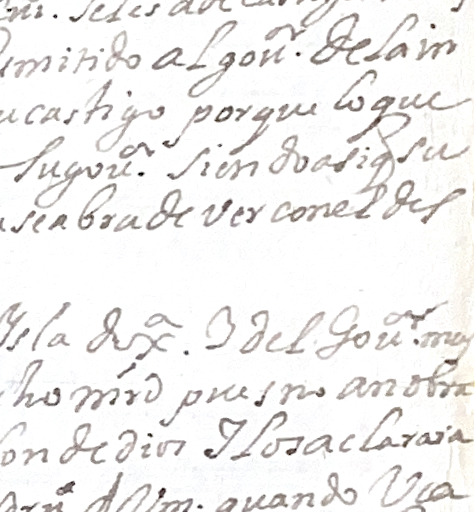 smitido al gouor. de la in
u castigo porque lo que
su gouor. siendo asiq su
a seabra de ver con el del
Ysla dha. J del Gouor. muy
cho mrd pues no an obra
on de dios J los aclarara
Vm. quando Vea